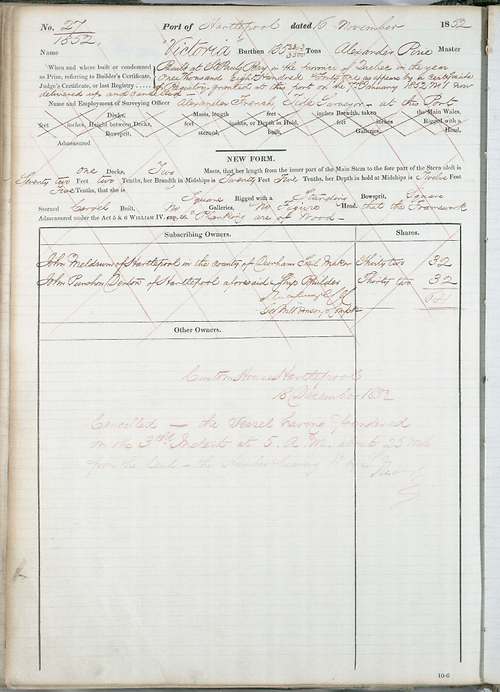 No. 27 Port of Hartlepool dated 16 November 1852
1852.
Name "Victoria" Burthen Tons Alexander Master
When and where built or condemned Built at St Pauls Bay in the Province of Quebec in the year
as Prize, referring to Builder's Certificate, One thousand Eight hundred forty five as appears by a certificate
Judge's Certificate, or last Registry of Registry granted at this port on the 7 January 1852 No 1 now
delivered up and cancelled
Name and Employment of Surveying Officer Alexander French, Tide Surveyor at this Port
Decks, Masts, length feet inches, Breadth, taken the Main Wales,
feet inches, Height between Decks, feet inches, or Depth in Hold, feet inches Rigged with a
Bowsprit, sterned, built, Galleries, Head,
Admeasured
NEW FORM.
one Decks, Two Masts, that her length from the inner part of the Main Stem to the fore part of the Stern aloft is
Seventy two Feet two Tenths, her Breadth in Midships is Twenty Feet Five Tenths, her Depth in hold at Midships is Twelve Feet
Five Tenths, that she is Square Rigged with a Standing Bowsprit, Square
Sterned Carvel Built, No Galleries, No Figure Head. that the Framework
Admeasured under the Act 5 & 6 WILLIAM IV. cap. 56. & Planking are of Wood
Subscribing Owners. Shares.
John of Hartlepool in the County of Durham Sail Maker Thirty two 32
John Punshon Denton of Hartlepool aforesaid Ship Builder Thirty two 32
64
Other Owners.
Custom House Hartlepool
December 1852
Cancelled — the Vessel having foundered
on the 3rd at 5. A.M. about 25 miles
from the Land — the
10-6